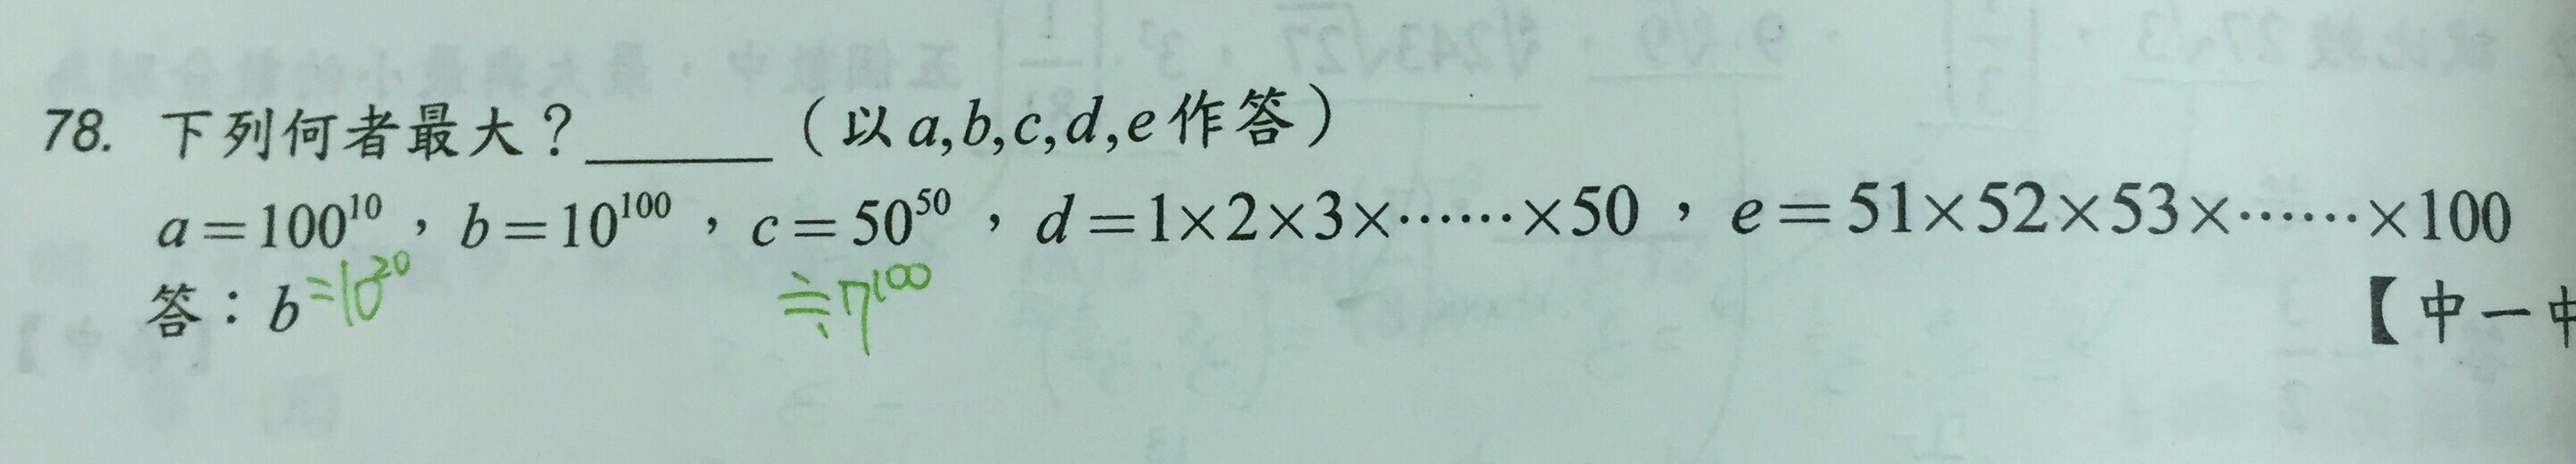 78. 下列何者最大？______（以a,b,c,d,e作答）
a=100¹⁰，b=10¹⁰⁰，c=50⁵⁰，d=1×2×3×⋯⋯×50，e=51×52×53×⋯⋯×100
答：b =10²⁰ ≒7¹⁰⁰ 【中一中